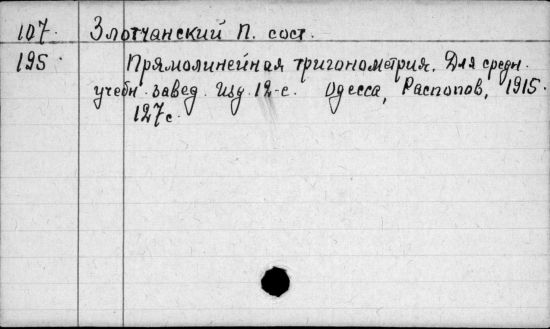 107. Злотчанский П. сост.
195. Прямолинейная тригонометрия. Для средн.
учебн. завед. Изд. 12-е. Одесса, Распопов, 1915.
127 с.